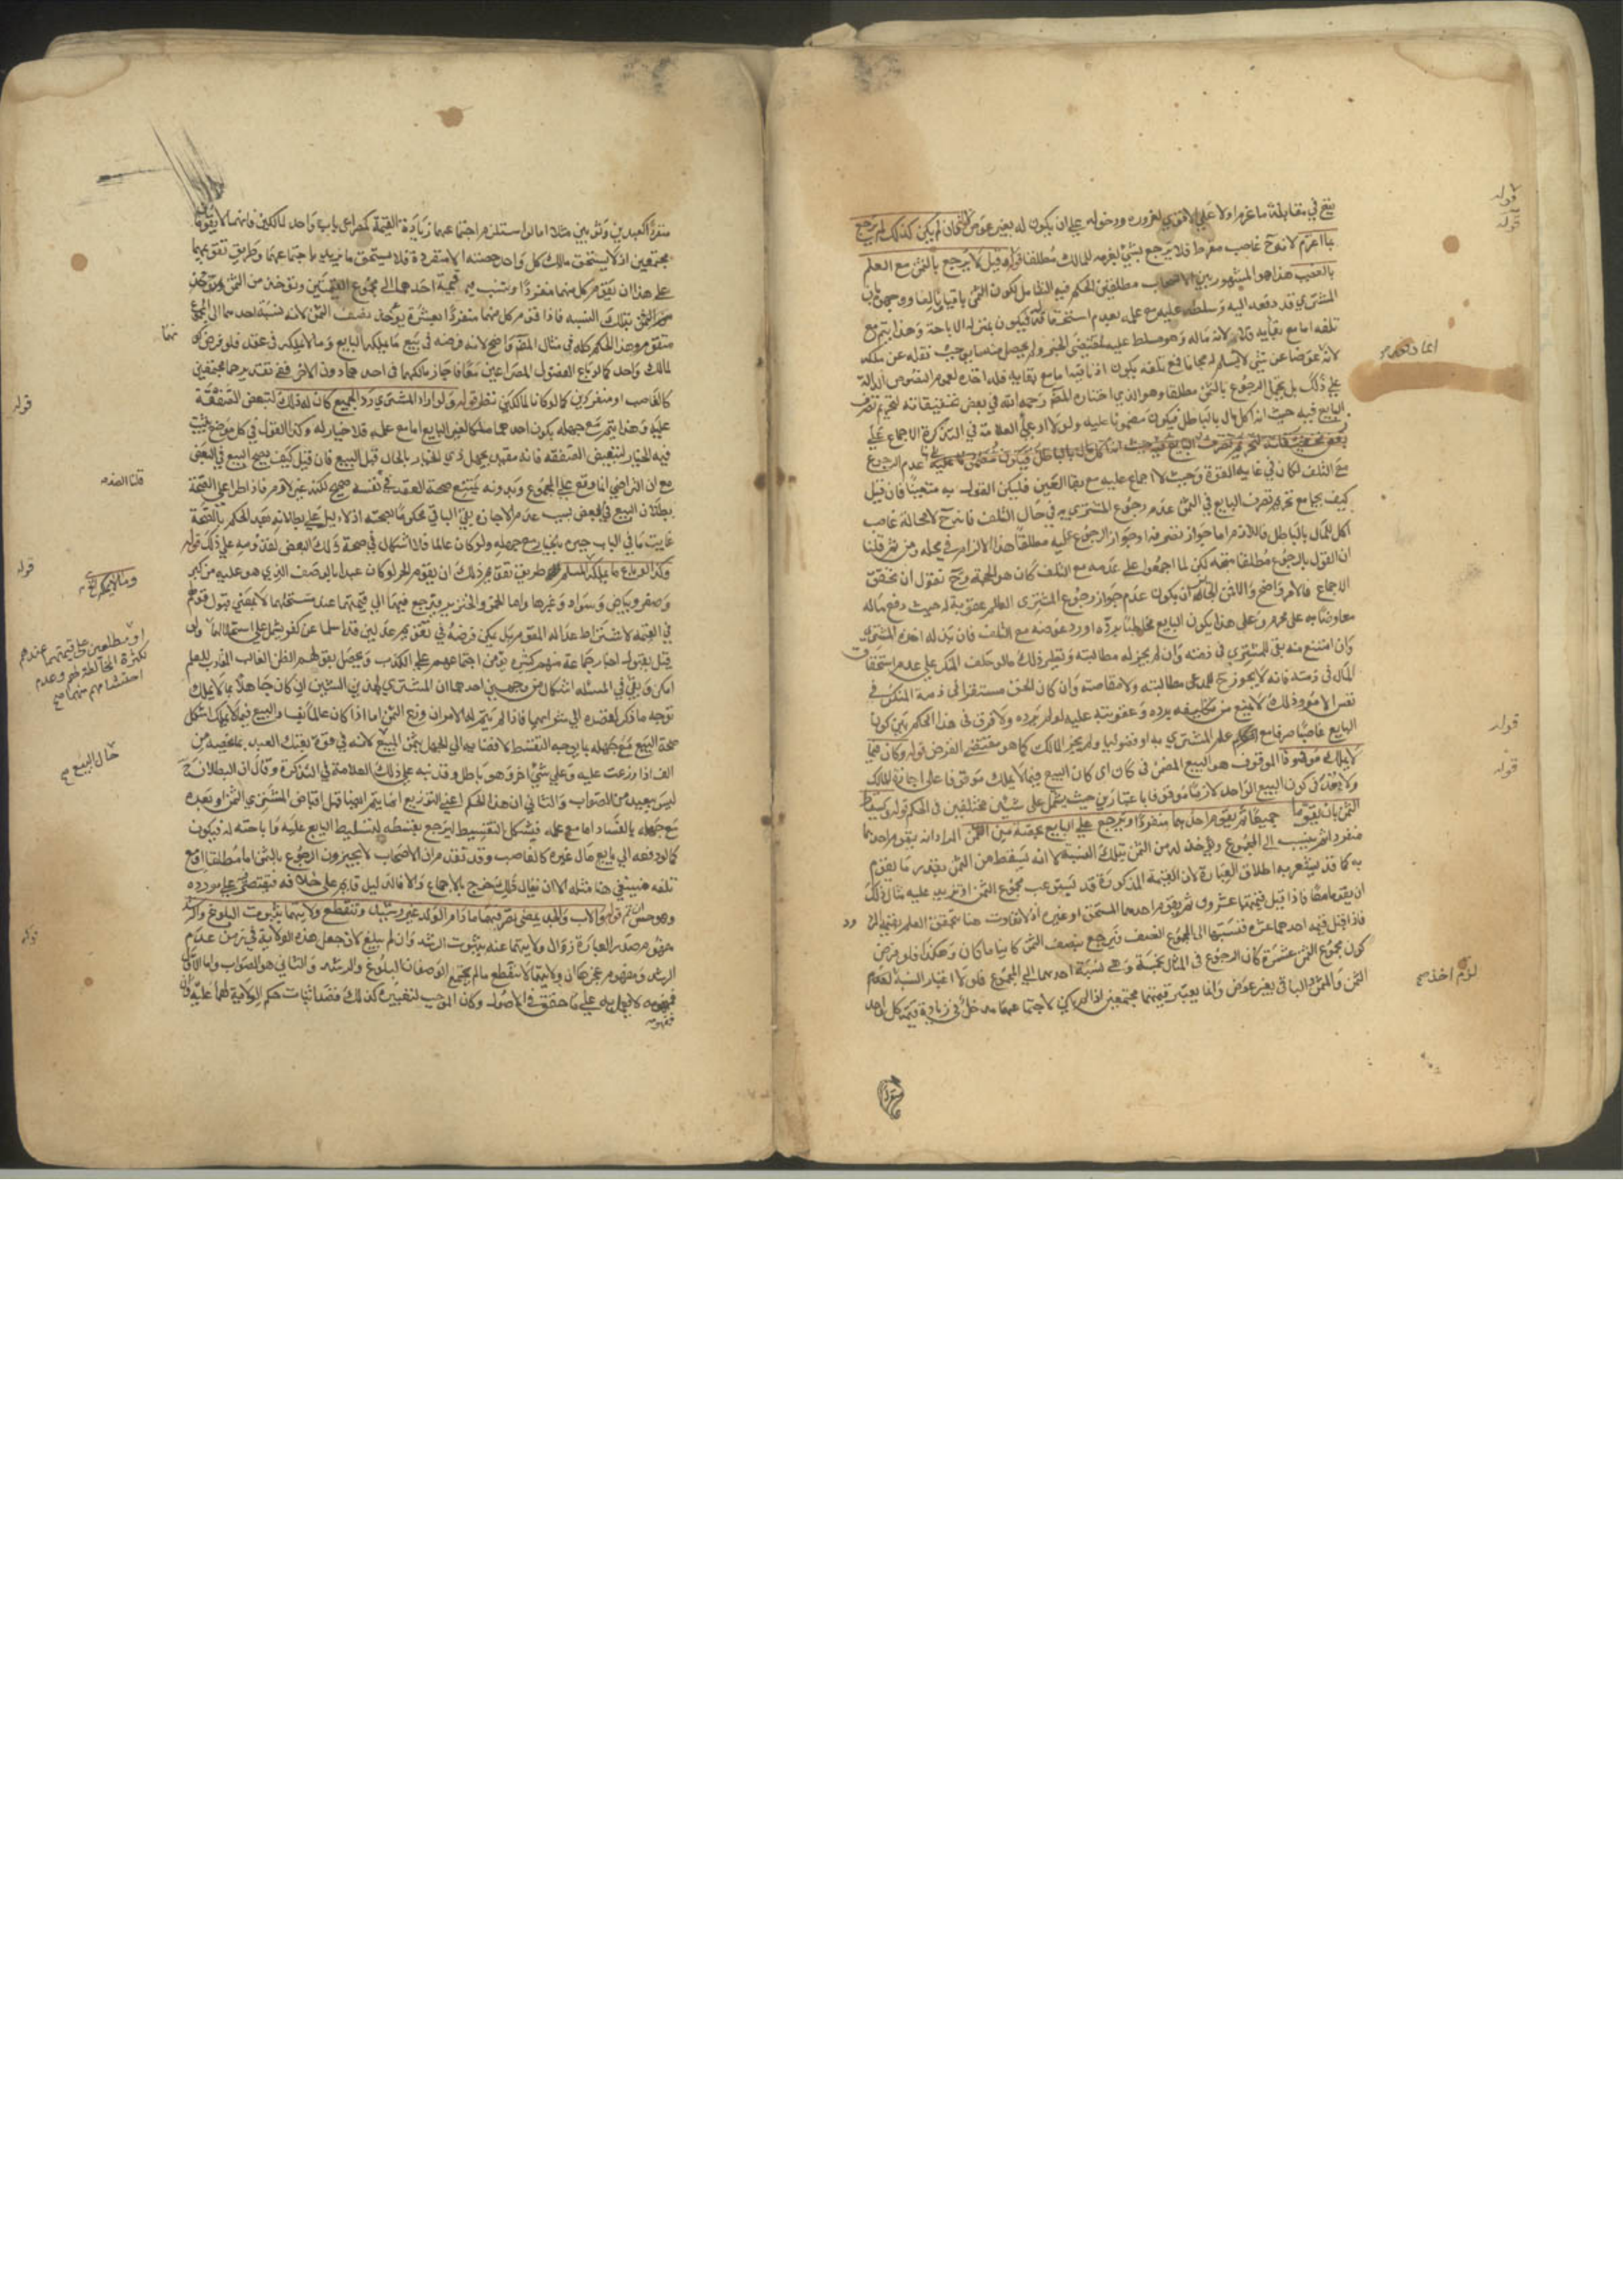 يقع في مقابلة ما غرم اولا على الاقوي لغروره ودخوله علي ان يكون له بغير عوض فان لم يكن كذلك لم يرجع
بما اغرم لانه ح غاصب مفرط فلا يرجع بشيء لغرمه للمالك مطلقا قوله وقيل لا يرجع بالثمن مع العلم
بالغصب هذا هو المشهور بين الاصحاب مطلقين الحكم فيه الشامل لكون الثمن باقيا وتالفا ووجهوه بان
المشتري قد دفعه اليه وسلطه عليه مع علمه بعدم استحقاقه له فيكون بمنزلة الاباحة وهذا يتم مع
تلفه اما مع بقايه فلا لانه ماله وهو مسلط عليه بمقتضى الخبر ولم يحصل منه ما يوجب نقله عن ملكه
لانه عوضا عن شيء لا يسلم له مجانا فمع تلفه يكون اذنا فيه اما مع بقايه فله اخذه لعموم النصوص الدالة
علي ذلك بل يحتمل الرجوع بالثمن مطلقا وهو الذي اختاره المحقق رحمه الله في بعض تحقيقاته لتحريم تصرف
البايع فيه حيث انه اكل مال بالباطل فيكون مضمونا عليه ولولا ادعي العلامة في التذكرة الاجماع علي
عدم الرجوع
مع التلف لكان في غاية القوة وحيث لا اجماع عليه مع بقا العين فليكن القول به متعينا فان قيل
كيف يجامع تحريم تصرف البايع في الثمن عدم رجوع المشتري به في حال التلف فانه ح لا محالة غاصب
اكل للمال بالباطل فاللازم اما جواز تصرفه او جواز الرجوع عليه مطلقا هذا الالزام في محله ومن ثم قلنا
ان القول بالرجوع مطلقا متجه لكن لما اجمعوا علي عدمه مع التلف كان هو الحجة وح نقول ان تحقق
الاجماع فالامر واضح والا فمن الجايز ان يكون عدم جواز رجوع المشتري الظالم عقوبة له حيث دفع ماله
معاوضا به على محرم وعلى هذا يكون البايع مخاطبا برده او رد عوضه مع التلف فان بذله اخذه المشتري
وان امتنع منه بقى للمشتري في ذمته وان لم يجز له مطالبته ونظير ذلك ما لو حلف المنكر على عدم استحقاق
المال في ذمته فانه لا يجوز ح للمدعى مطالبته ولا مقاصته وان كان الحق مستقرا في ذمة المنكر في
نفس الامر وذلك لا يمنع من تكليفه برده وعقوبته عليه لو لم يرده ولا فرق في هذا الحكم بين كون
البايع غاصبا صرفا مع علم المشتري به او فضوليا ولم يجز المالك كما هو مقتضى الفرض قوله وكان فيما
لا يملك موقوفا الموقوف هو البيع المضمن في كان اي كان البيع فيما لا يملك موقوفا على اجازة المالك
ولا بعد في كون البيع الواحد لازما موقوفا باعتبارين حيث يشتمل على شيئين مختلفين في الحكم قوله ويقسط
الثمن بان يقوما جميعا ثم يقوم احدهما منفردا ويرجع علي البايع بحصته من الثمن المراد انه يقوم احدهما
منفردا ثم ينسب الي المجموع ويؤخذ له من الثمن بتلك النسبة لا انه يسقط من الثمن بقدر ما يقوم
به كما قد يشعر به اطلاق العبارة لان القيمة المذكورة قد تستوعب مجموع الثمن او تزيد عليه مثال ذلك
ان يقوما معا فاذا قيل قيمتهما عشرون ثم يقوم احدهما المستحق او غيره اذ لا تفاوت هنا لتحقق العلم بقيمة الاخر
فاذا قيل قيمة احدهما عشرة فنسبتها الى المجموع النصف فيرجع بنصف الثمن كاينا ما كان وهكذا فلو فرض
كون مجموع الثمن عشرة كان الرجوع في المثال بخمسة وهي نسبة احدهما الي المجموع فلولا اعتبار النسبة لزم اخذ
الثمن والمثمن والباقي بغير عوض وانما يعتبر قيمتهما مجتمعين اذا لم يكن لاجتماعهما مدخل في زيادة قيمة كل واحد
قوله
قوله
قوله
قوله
لزم اخذ صح
منفردا كعبدين وثوبين مثلا اما لو استلزم اجتماعهما زيادة القيمة كمصراعي باب واحد لمالكين فانهما لا يقومان
مجتمعين اذ لا يستحق مالك كل واحد حصته الا منفردة فلا يستحق ما يزيد باجتماعهما وطريق تقويمهما
على هذا ان يقوم كل منهما منفردا وينسب قيمة احدهما الى مجموع القيمتين ويؤخذ من الثمن
بتلك النسبه فاذا قوم كل منهما منفردا بعشرة يؤخذ نصف الثمن لانه نسبة احدهما الى المجموع
متقوم وهذا الحكم كله في مثال المتن واضح لانه فرضه في بيع ما يملكه البايع وما لا يملكه في عقد فلو فرض كونهما
لمالك واحد كما لو باع الفضولي المصراعين معا فاجاز مالكهما في احدهما دون الاخر ففي تقديرهما مجتمعين
كالغاصب او منفردين كما لو كانا لمالكين نظر قوله ولو اراد المشتري رد الجميع كان له ذلك لتبعض الصفقة
عليه وهذا يتم مع جهله بكون احدهما ملكا لغير البايع اما مع علمه فلا خيار له وكذا القول في كل موضع يثبت
فيه الخيار لتبعيض الصفقه فانه مقيد بجهل ذي الخيار بالحال قبل البيع فان قيل كيف يصح البيع في البعض
مع ان التراضي انما وقع علي المجموع وبدونه يمتنع صحة العقد في نفسه صحيح لكنه غير لازم فاذا طرا علي الصحة
بطلان البيع في البعض بسبب عدم الاجازة بقي الباقي محكوما بصحته اذ لا دليل على بطلانه بعد الحكم بالصحة
غاية ما في الباب جبره بخيار مع جهله ولو كان عالما فلا اشكال في صحة ذلك البعض لقدومه علي ذلك قوله
وكذا لو باع ما يملكه المسلم طريق تقويم ذلك ان يقوم الحر لو كان عبدا بالوصف الذي هو عليه من كبر
وصغر وبياض وسواد وغيرها واما الخمر والخنزير فيرجع فيهما الي قيمتهما عند مستحلهما لا بمعنى قبول قولهم
في القيمة لاشتراط عدالة المقوم بل يمكن فرضه في تقويم عدلين قد اسلما عن كفر يشتمل على استحلالهما ولو
قيل بقبول اخبار جماعة منهم كثيرة يؤمن اجتماعهم على الكذب ويحصل بقولهم الظن الغالب المقارب للعلم
امكن وبقى في المسئله اشكال من وجهين احدهما ان المشتري لهذين الشيئين ان كان جاهلا بما لا يملك
توجه ما ذكر لقصده الي شرايهما فاذا لم يتم له الامران وزع الثمن اما اذا كان عالما فالبيع فيما لا يملك اشكل
صحة البيع مع جهله بما يوجبه التقسيط لافضايه الي الجهل بثمن المبيع لانه في قوة بعتك العبد بما يخصه من
الف اذا وزعت عليه وعلي شيء اخر وهو باطل وقد نبه علي ذلك العلامة في التذكرة وقال ان البطلان ح
ليس ببعيد من الصواب والثاني ان هذا الحكم اعني التوزيع انما يتم ايضا قبل اقباض المشتري الثمن او بعده
مع جهله بالفساد اما مع علمه فيشكل التقسيط ليرجع بقسطه لتسليط البايع عليه واباحته له فيكون
كما لو دفعه الي بايع مال غيره كالغاصب وقد تقدم ان الاصحاب لا يجيزون الرجوع بالثمن اما مطلقا او مع
تلفه فينبغي هنا مثله الا ان يقال ذلك خرج بالاجماع والا فالدليل قايم على خلافه فيقتصر على مورده
وهو حسن ان تم قوله والاب والجد يمضي تصرفهما ما دام الولد غير رشيد وتنقطع ولايتهما بثبوت البلوغ والرشد
مفهوم صدر العبارة زوال ولايتهما عنه بثبوت الرشد وان لم يبلغ لانه جعل هذه الولاية في زمن عدم
الرشد ومفهوم عجزها ان ولايتهما لا تنقطع ما لم يجتمع الوصفان البلوغ والرشد والثاني هو الصواب واما الاول
فمفهومه لا يعمل به علي ما حقق في الاصول وكان الموجب لتعبيره كذلك قصد اثبات حكم الولاية لهما عليه وان
فمفهومه
قوله
قلنا العقد صح
قوله
وما لا يملكه صح
او مطلعين على قيمتهما عندهم
لكثرة المخالطة لهم وعدم
احتشامهم منهما صح
حال البيع صح
قوله